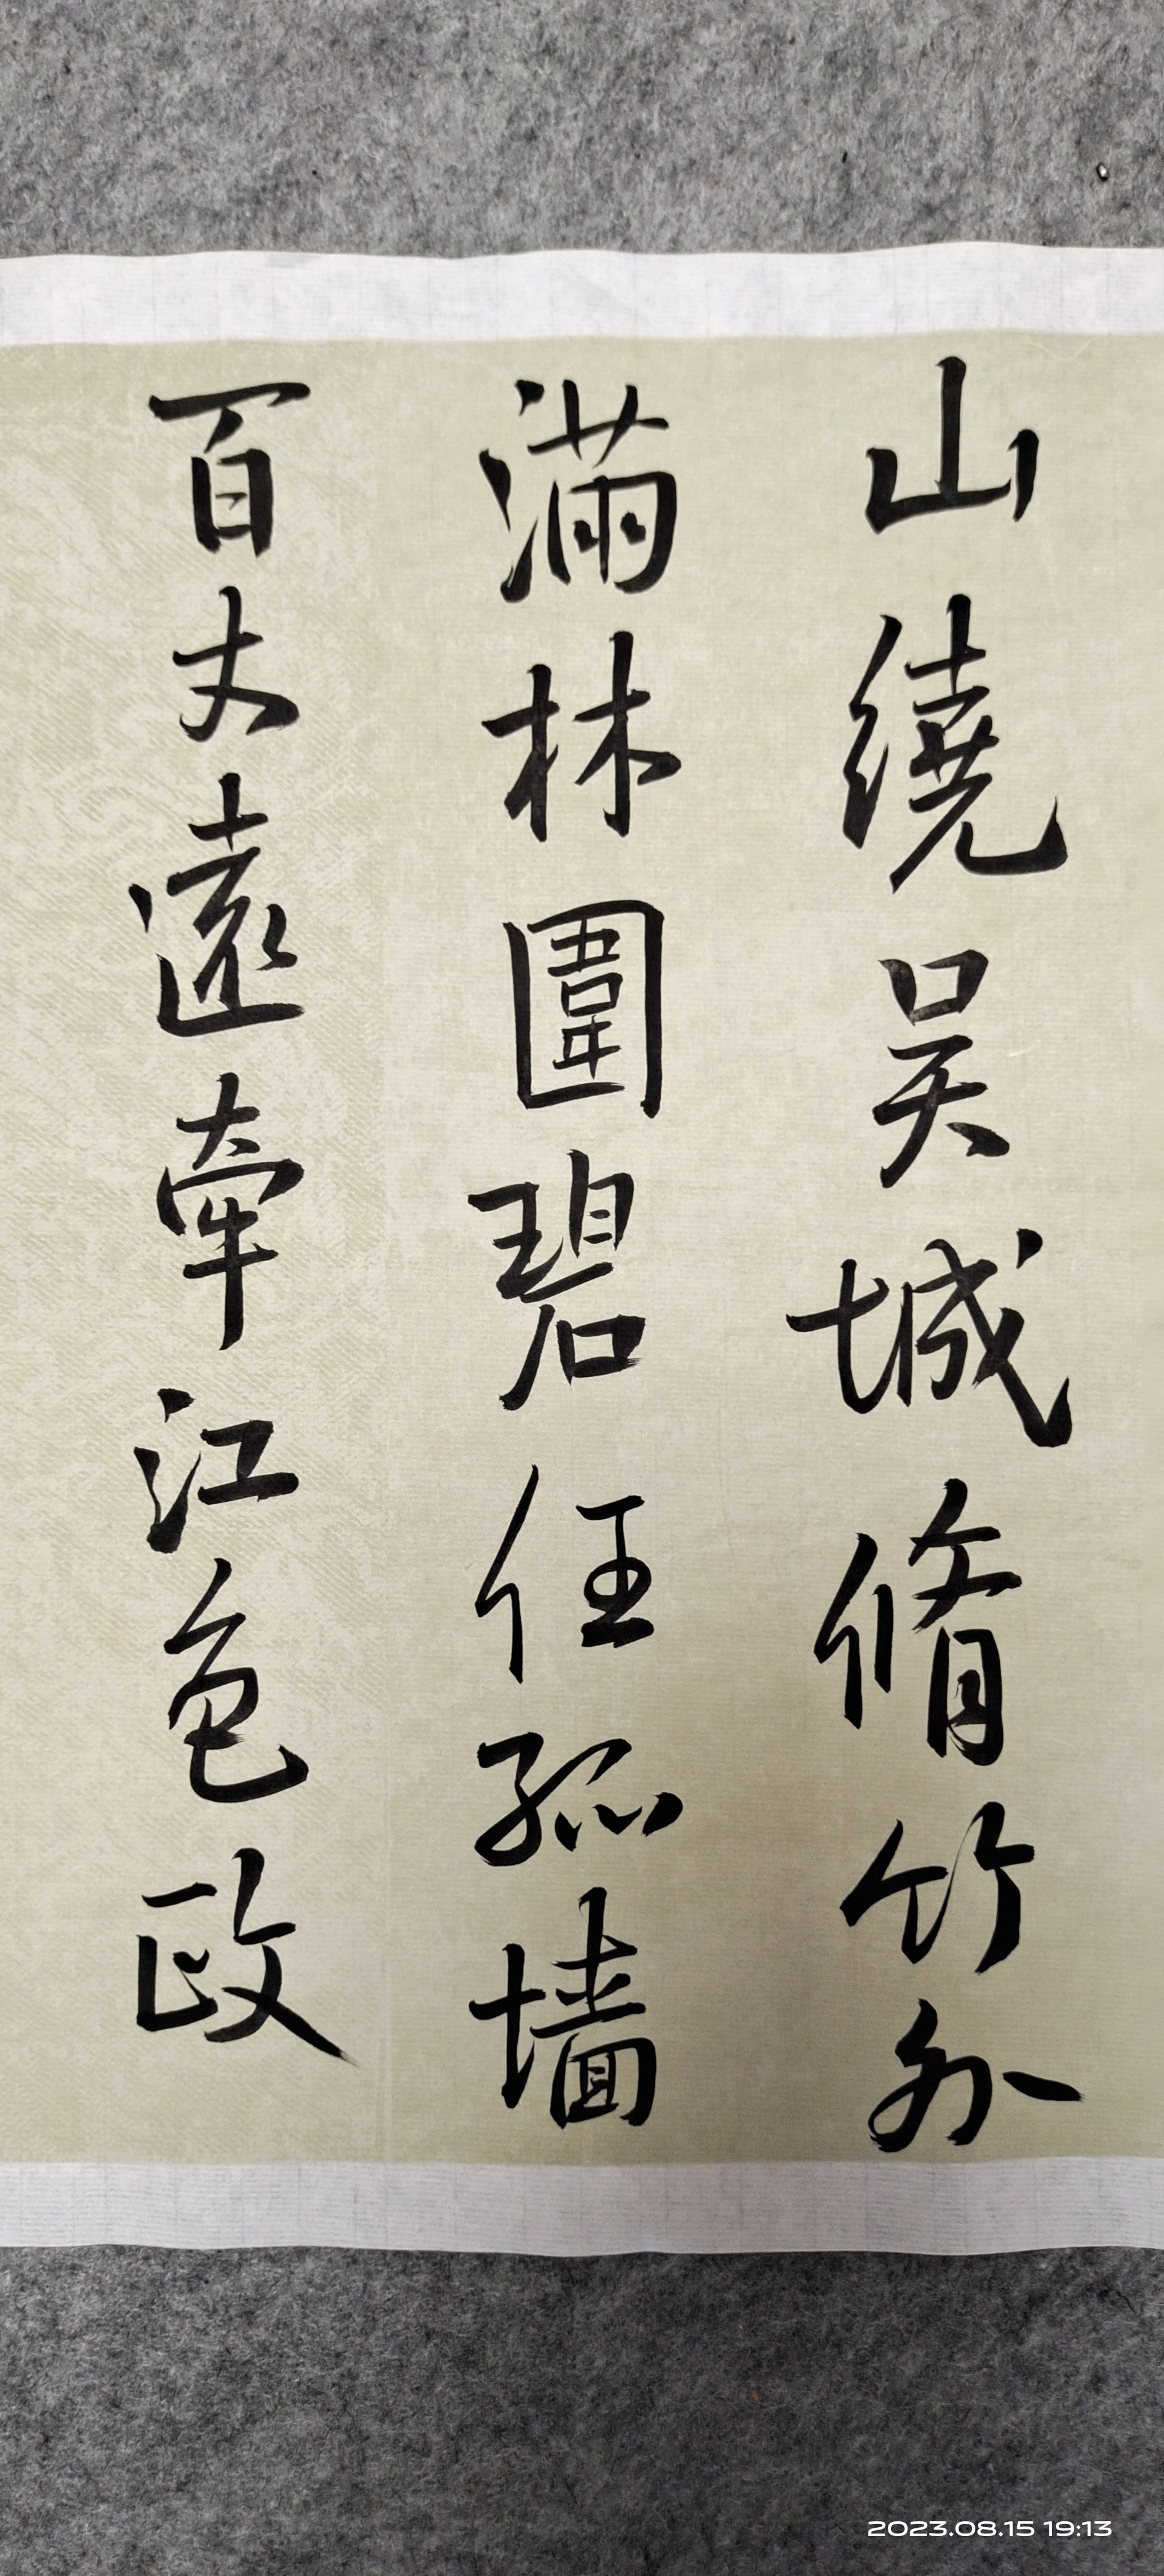 山繞吳城脩竹外
滿林圍碧任孤墻
百丈遠牽江色政
2023.08.15 19:13